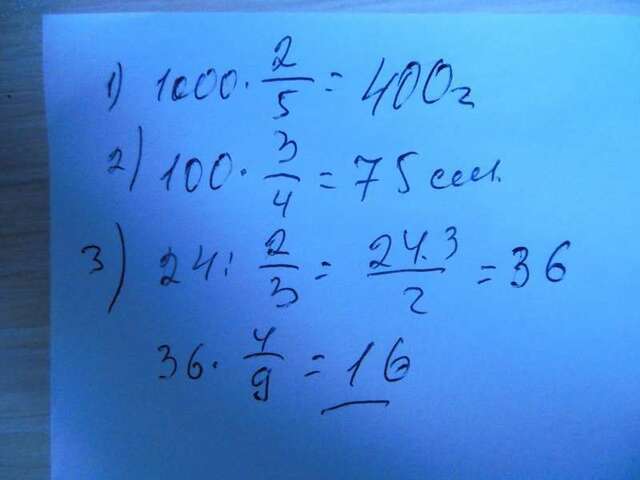 1) 1000 · 2/5 = 400г
2) 100 · 3/4 = 75 см.
3) 24 : 2/3 = 24·3/2 = 36
36 · 4/9 = 16